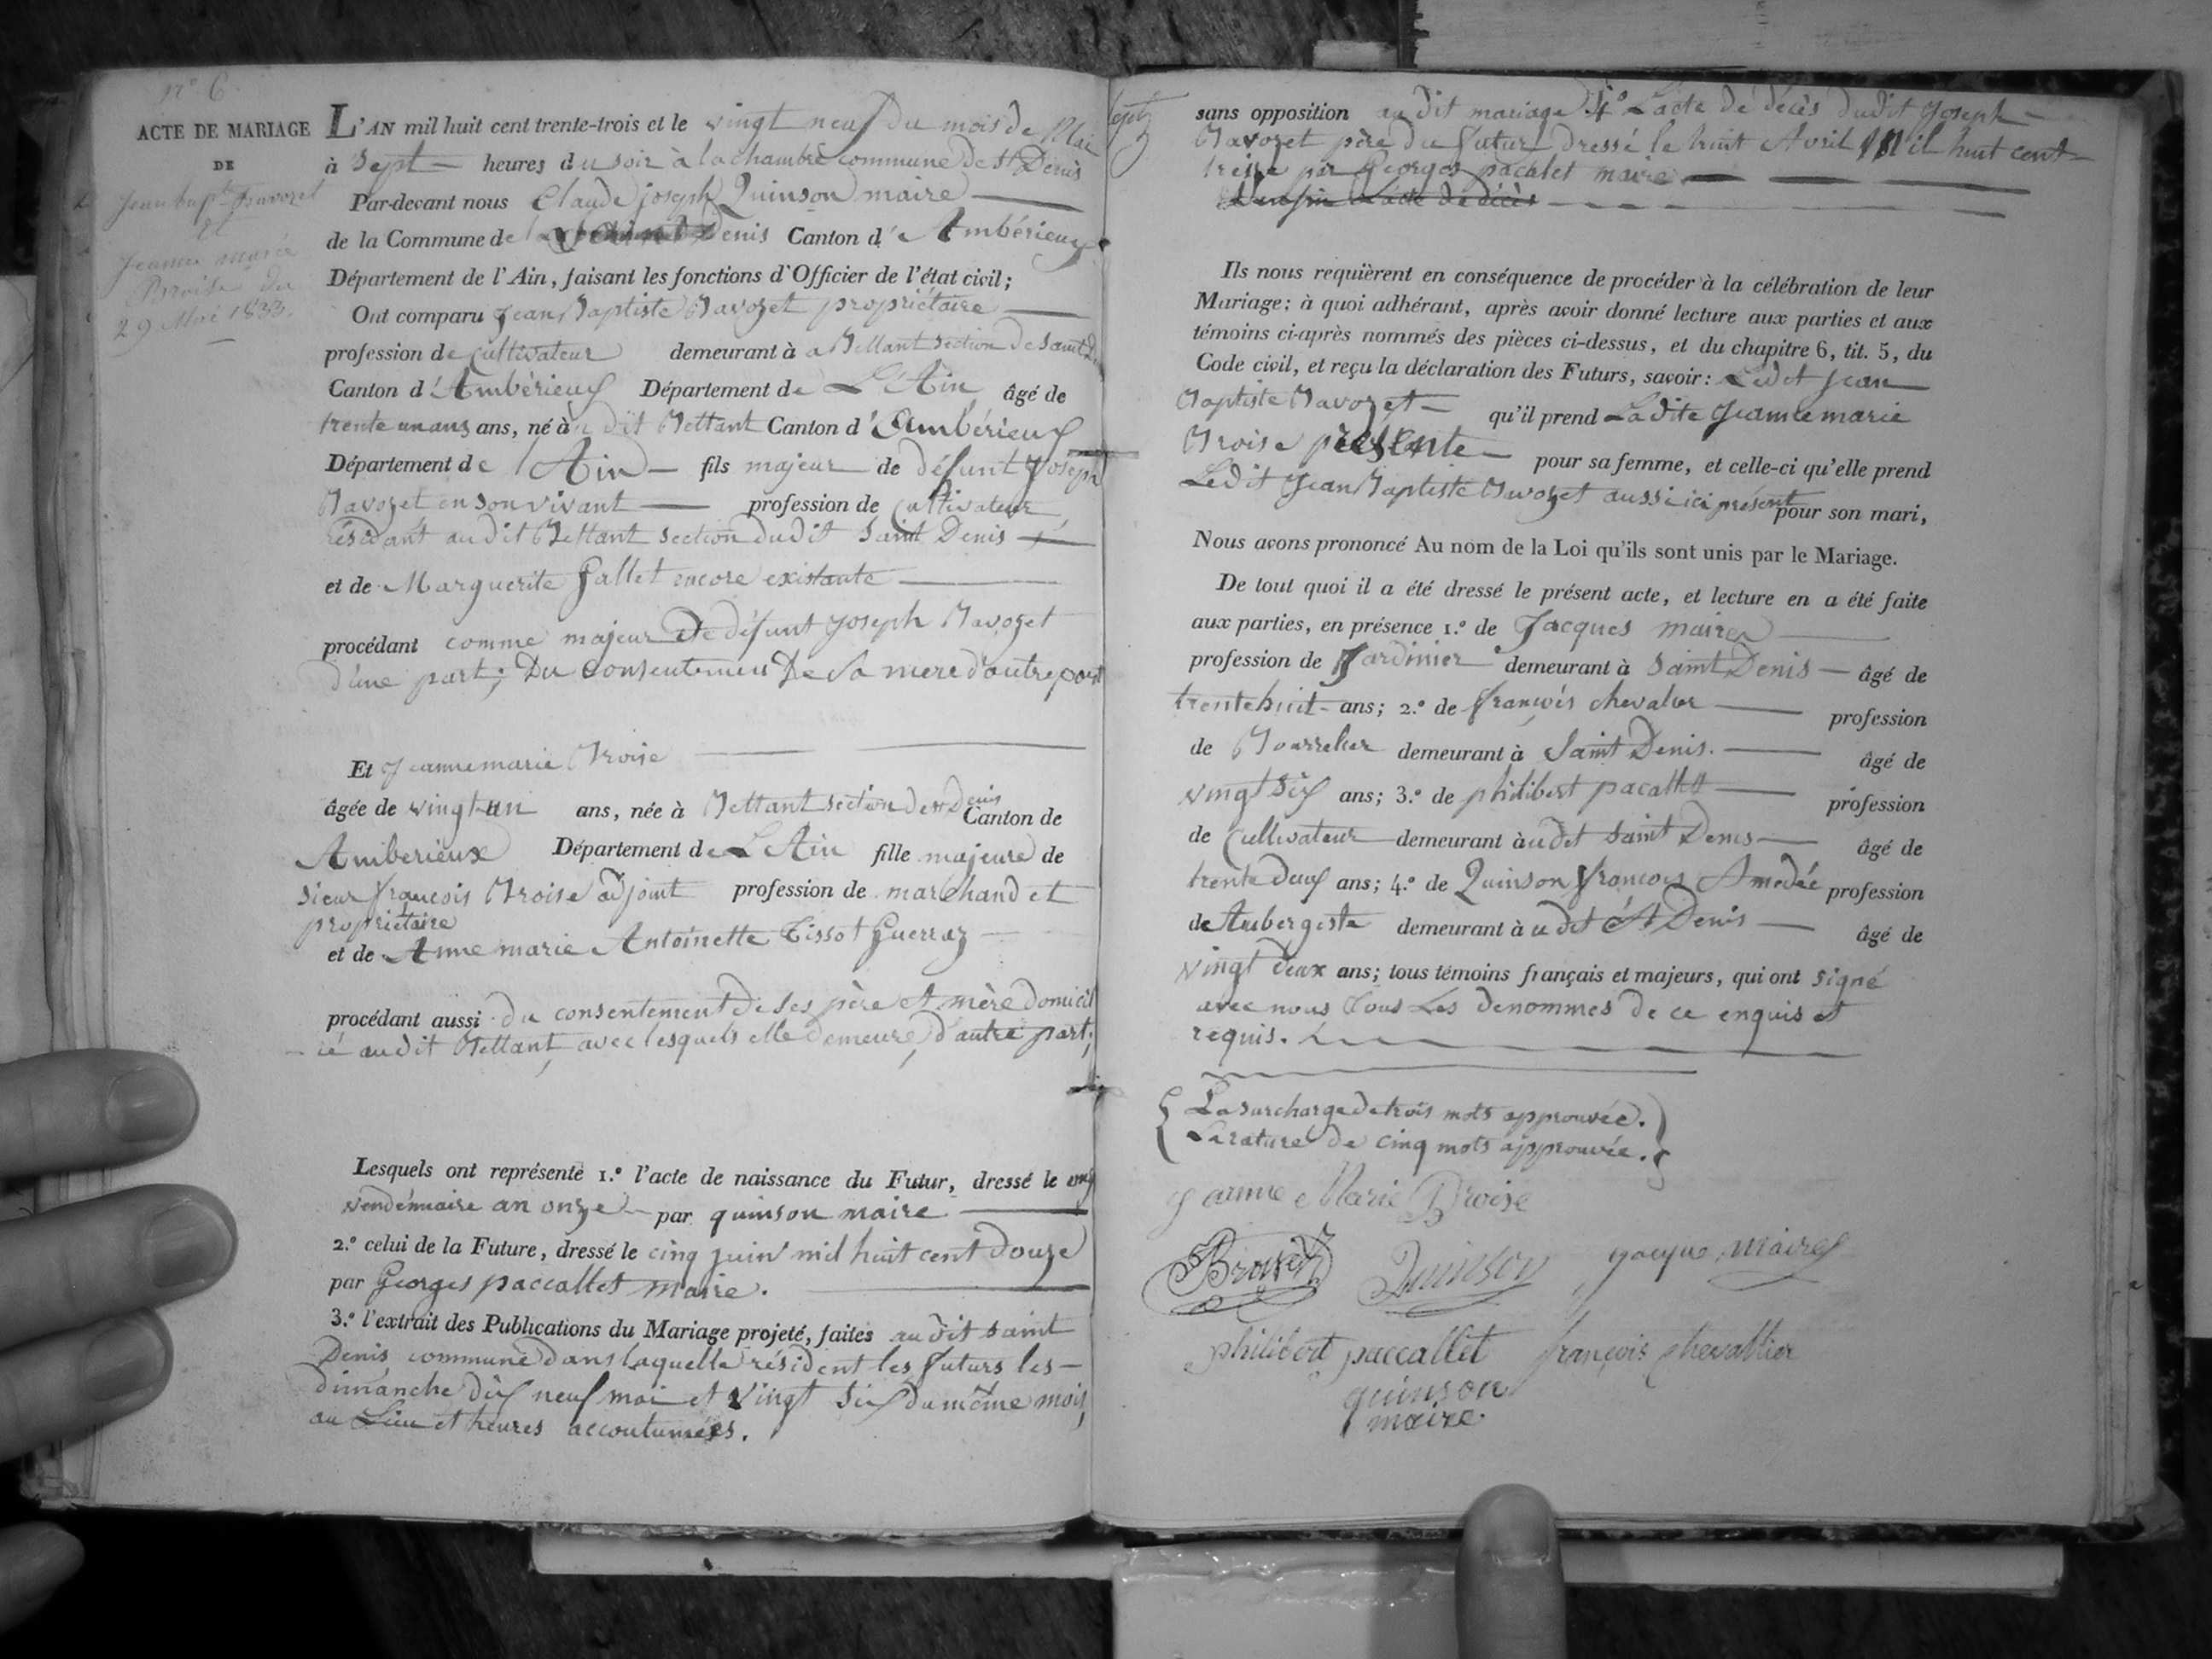 n.º 6
ACTE DE MARIAGE
DE
Jean bapte Bavozet
Et
Jeanne marie
Broise du
29 Mai 1833.
L'AN mil huit cent trente-trois et le vingt neuf du mois de Mai
à Sept heures du soir à la chambre commune de St Denis
Par-devant nous Claude joseph Quinson maire
de la Commune de Denis Canton d' Ambérieux
Département de l'Ain, faisant les fonctions d'Officier de l'état civil;
Ont comparu Jean Baptiste Bavozet propriétaire
profession de Cultivateur demeurant à a Bettant Section de Saint
Canton d'Ambérieux Département de L'Ain âgé de
trente un ans ans, né à dit Bettant Canton d'Ambérieux
Département de l'Ain fils majeur de défunt Joseph
Bavozet en son vivant profession de Cultivateur
résidant audit Bettant section dudit Saint Denis
et de Marguerite Gallet encore existante
procédant comme majeur de défunt Joseph Bavozet
d'une part; Du Consentement De Sa mere d'autre part
Et Jeanne marie Broise
âgée de vingt-un ans, née à Bettant section de St Denis Canton de
Amberieux Département de L'Ain fille majeure de
sieur françois Broise adjoint profession de marchand et
propriétaire
et de Anne marie Antoinette Tissot Guerraz
procédant aussi du consentement de ses père et mère domicil
-ié audit Bettant, avec lesquels elle demeure, d'autre part;
Lesquels ont représenté 1.º l'acte de naissance du Futur, dressé le
vendémiaire an onze par quinson maire
2.º celui de la Future, dressé le cinq juin mil huit cent douze
par Georges paccallet maire.
3.º l'extrait des Publications du Mariage projeté, faites au dit saint
Denis commune dans laquelle résident les futurs les
dimanche dix neuf mai et vingt six du même mois,
au Lieu et heures accoutumées.
sept
sans opposition au dit mariage 4º L'acte de décès dudit Joseph
Bavozet père du futur dressé le huit Avril Mil huit cent
treize par Georges pacalet maire
L'acte de décès
Ils nous requièrent en conséquence de procéder à la célébration de leur
Mariage: à quoi adhérant, après avoir donné lecture aux parties et aux
témoins ci-après nommés des pièces ci-dessus, et du chapitre 6, tit. 5, du
Code civil, et reçu la déclaration des Futurs, savoir: Ledit Jean
Baptiste Bavozet qu'il prend Ladite Jeanne marie
Broise présente pour sa femme, et celle-ci qu'elle prend
Ledit Jean Baptiste Bavozet aussi ici présent pour son mari,
Nous avons prononcé Au nom de la Loi qu'ils sont unis par le Mariage.
De tout quoi il a été dressé le présent acte, et lecture en a été faite
aux parties, en présence 1.º de Jacques maire
profession de Jardinier demeurant à Saint Denis âgé de
trente huit ans; 2.º de françois chevalier profession
de Bourrelier demeurant à Saint Denis. âgé de
vingt Six ans; 3.º de philibert pacallet profession
de Cultivateur demeurant à udit Saint Denis âgé de
trente deux ans; 4.º de Quinson françois Amédée profession
de Aubergiste demeurant à udit St Denis âgé de
vingt deux ans; tous témoins français et majeurs, qui ont signé
avec nous tous Les denommes de ce enquis et
requis.
La surcharge de trois mots approuvée.
La rature de cinq mots approuvée.
Jeanne Marie Broise
Broise
Quinson
jacque maire
philibert paccallet françois chevallier
quinson
maire.